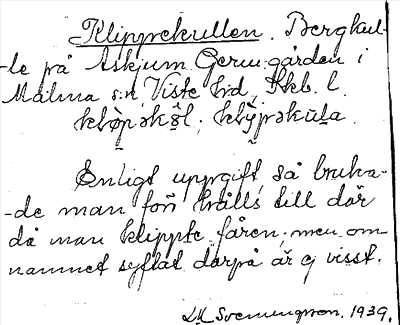 Klippekullen. Bergkul-
-le på Askjum Gerumgården i
Malma s:n, Viste hd, Skbl.
Enligt uppgift så bruka-
-de man förr hålls till där
då man klippte fåren, men om
namnet syftat därpå är ej visst.
Svenungsson. 1939.